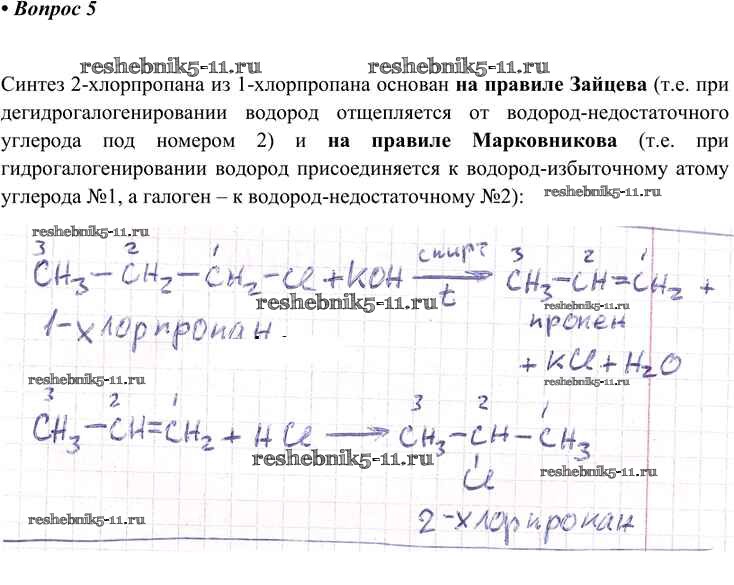 • Вопрос 5
reshebnik5-11.ru reshebnik5-11.ru
Синтез 2-хлорпропана из 1-хлорпропана основан на правиле Зайцева (т.е. при
дегидрогалогенировании водород отщепляется от водород-недостаточного
углерода под номером 2) и на правиле Марковникова (т.е. при
гидрогалогенировании водород присоединяется к водород-избыточному атому
углерода №1, а галоген – к водород-недостаточному №2):
reshebnik5-11.ru
reshebnik5-11.ru
3 2 1 спирт 3 2 1
CH₃ – CH₂ – CH₂ – Cl + KOH ⟶ CH₃ – CH = CH₂ +
reshebnik5-11.ru t reshebnik5-11.ru
1-хлорпропан пропен
+ KCl + H₂O
reshebnik5-11.ru reshebnik5-11.ru
3 2 1 3 2 1
CH₃ – CH = CH₂ + HCl ⟶ CH₃ – CH – CH₃
reshebnik5-11.ru reshebnik5-11.ru
Cl
reshebnik5-11.ru 2-хлорпропан